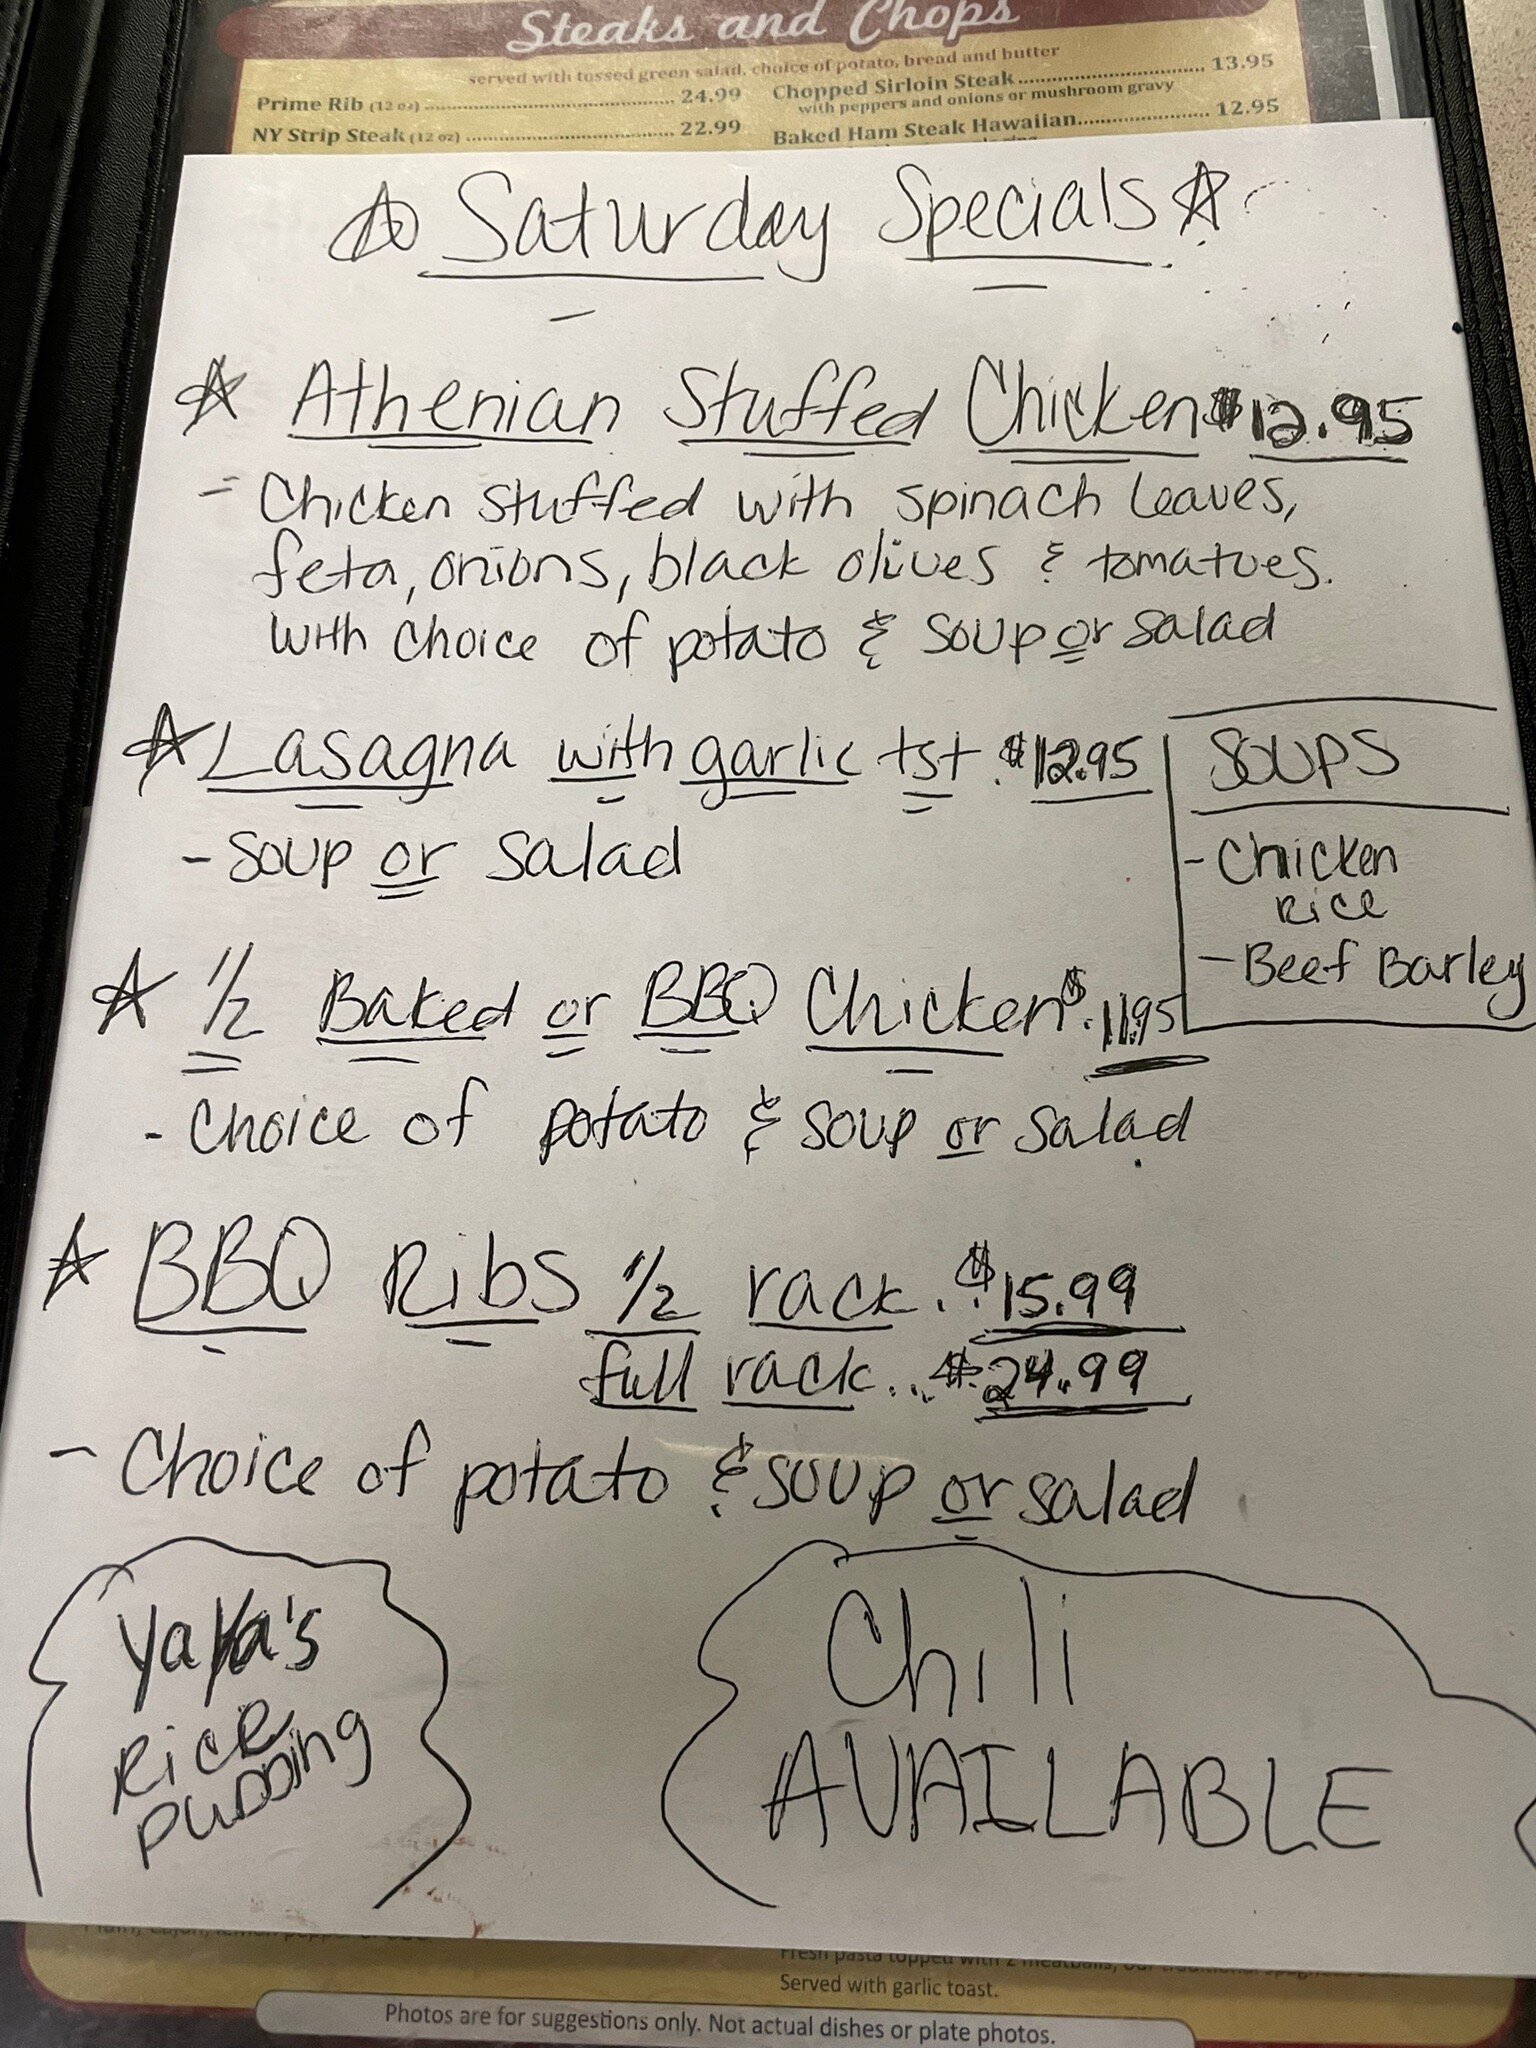 Steaks and Chops
served with tossed green salad, choice of potato, bread and butter
Prime Rib (12 oz) ........................ 24.99
NY Strip Steak (12 oz) ........................ 22.99
Chopped Sirloin Steak ........................ 13.95
with peppers and onions or mushroom gravy
Baked Ham Steak Hawaiian ........................ 12.95
Saturday Specials
Athenian Stuffed Chicken $12.95
= Chicken stuffed with spinach leaves,
feta, onions, black olives & tomatoes.
with choice of potato & soup or salad
Lasagna with garlic tst. $12.95
- soup or salad
SOUPS
- Chicken
Rice
- Beef Barley
1/2 Baked or BBQ Chicken $.11.95
- Choice of potato & soup or salad
BBQ Ribs 1/2 rack. $15.99
full rack... $24.99
- Choice of potato & soup or salad
YaYa's
Rice
PUDDing
Chili
AVAILABLE
Fresh pasta topped with 2 meatballs, our traditional spaghetti
Served with garlic toast.
Photos are for suggestions only. Not actual dishes or plate photos.